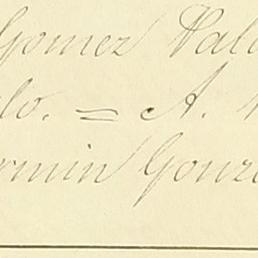 Gomez Val
lo. = A.
rmin Gonz